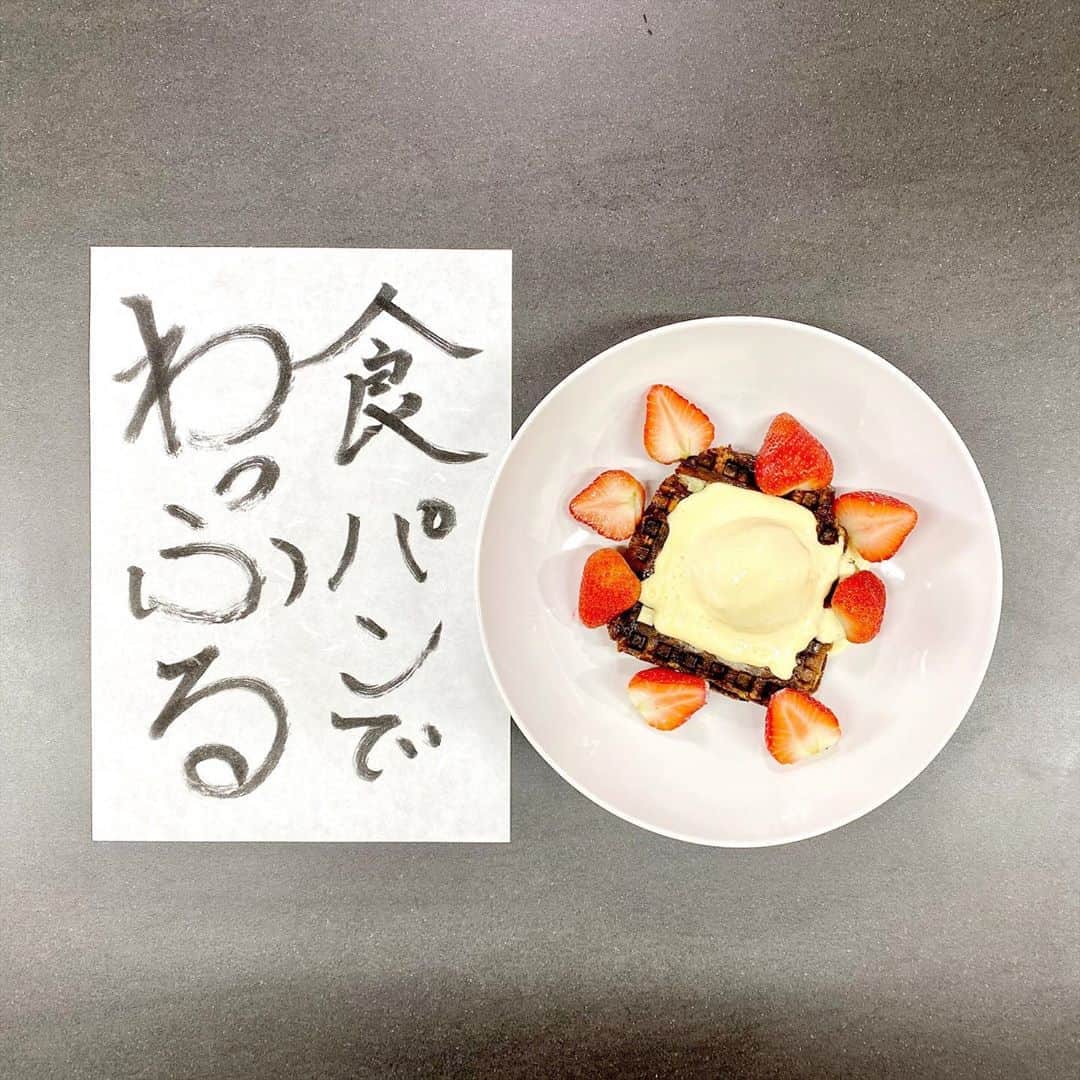 食パンで
わっふる